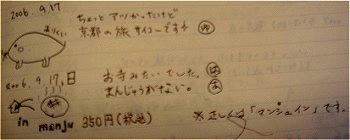 2006. 9. 17
ちょっと アツかったけど
京都の旅サイコーです。 ゆ
まりぃい
2006. 9. 17. 日
お寺みたいでした。 は
まんじゅうがすごい。 よ
in manju 350円(税込)
※正しくは「マンシュイン」です。